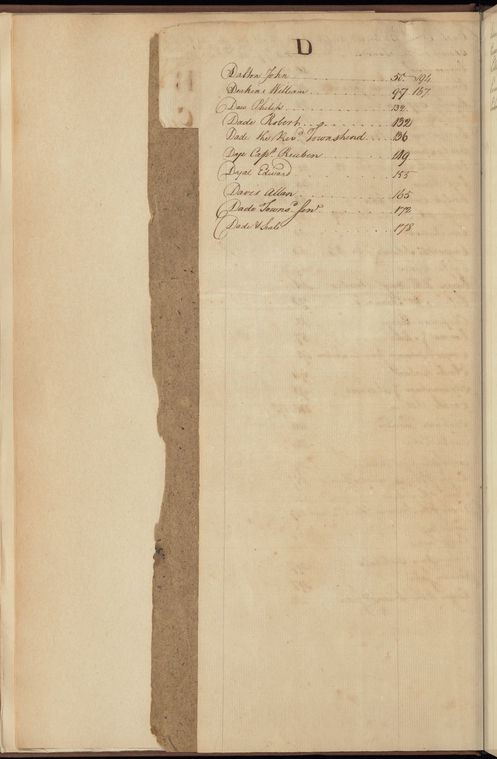 D
Dalton John 50 194
Deakins William 97 167
Daw Philip 132
Dade Robert 132
Dade the Revd. Townshend 136
Daye Capt. Reuben 149
Edward 155
Davis Allan 165
Dade Townsd. Junr. 172
Dade & 178